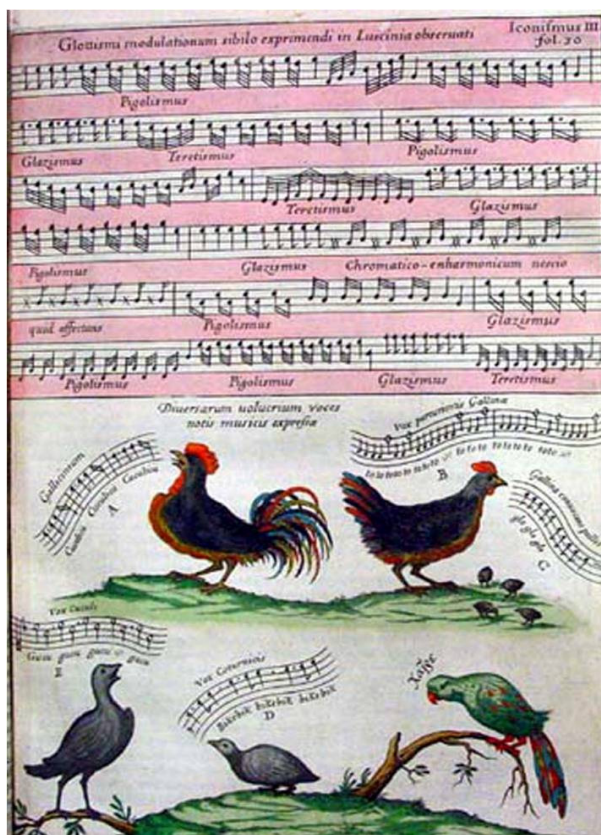 Glottismi modulationum sibilo exprimendi in Luscinia observati
Iconismus III
fol. 30
Pigolismus
Glazismus Teretismus Pigolismus
Teretismus Glazismus
Pigolismus Glazismus Chromatico-enharmonicum nescio
quid affectans Pigolismus Glazismus
Pigolismus Pigolismus Glazismus Teretismus
Diversarum volucrium voces
notis musicis expressæ
Gallicinium
Cucubicu Cucubicu Cucubicu
A
Vox Gallinæ
to to to to to to to
B
Gallina
glo glo glo
C
Vox Cuculi
Gucu gucu gucu gucu
E
Vox Coturnicis
Bikebik bikebik bikebik
D
Χαῖρε